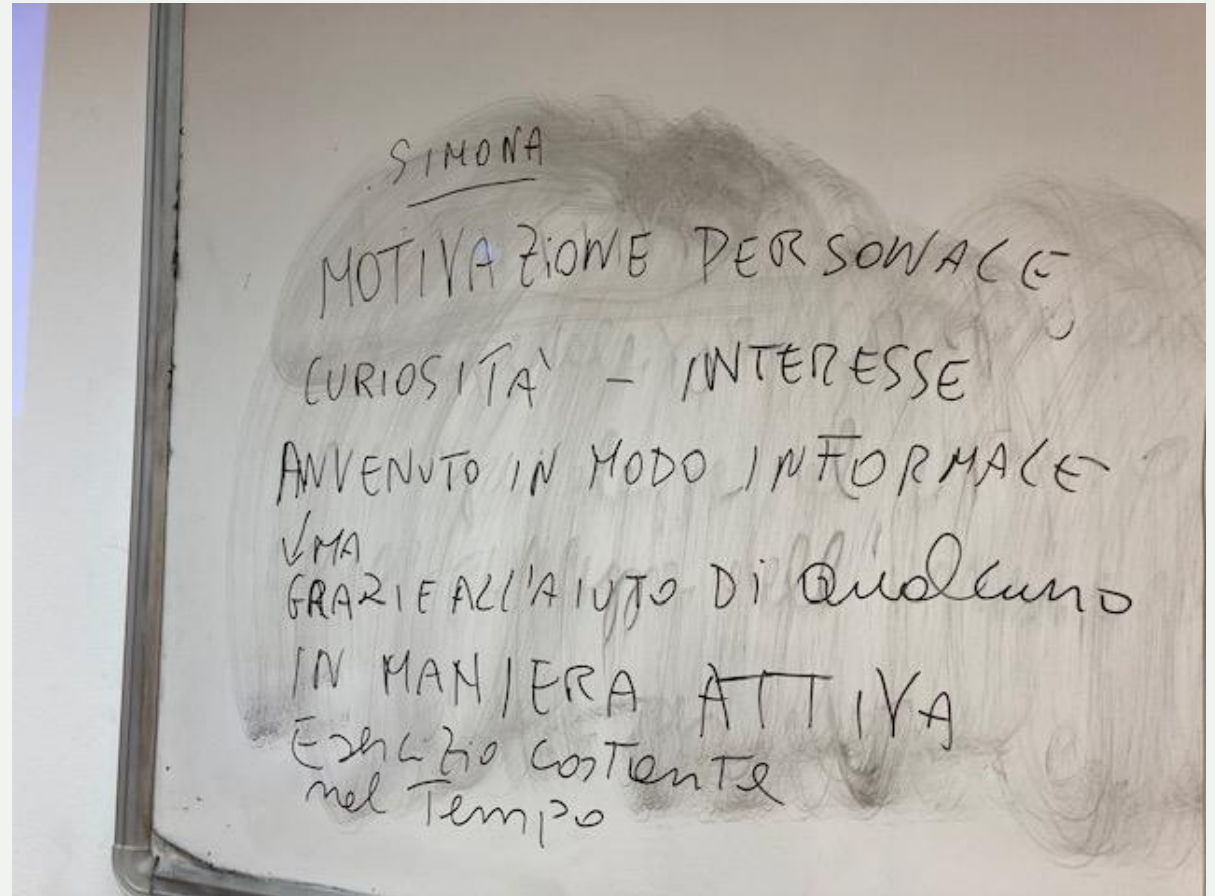 SIMONA
MOTIVAZIONE PERSONALE
CURIOSITÀ - INTERESSE
ANVENUTO IN MODO INFORMALE
↓ MA
GRAZIE ALL'AIUTO Di Qualcuno
IN MANIERA ATTIVA
Esercizio costante
nel Tempo